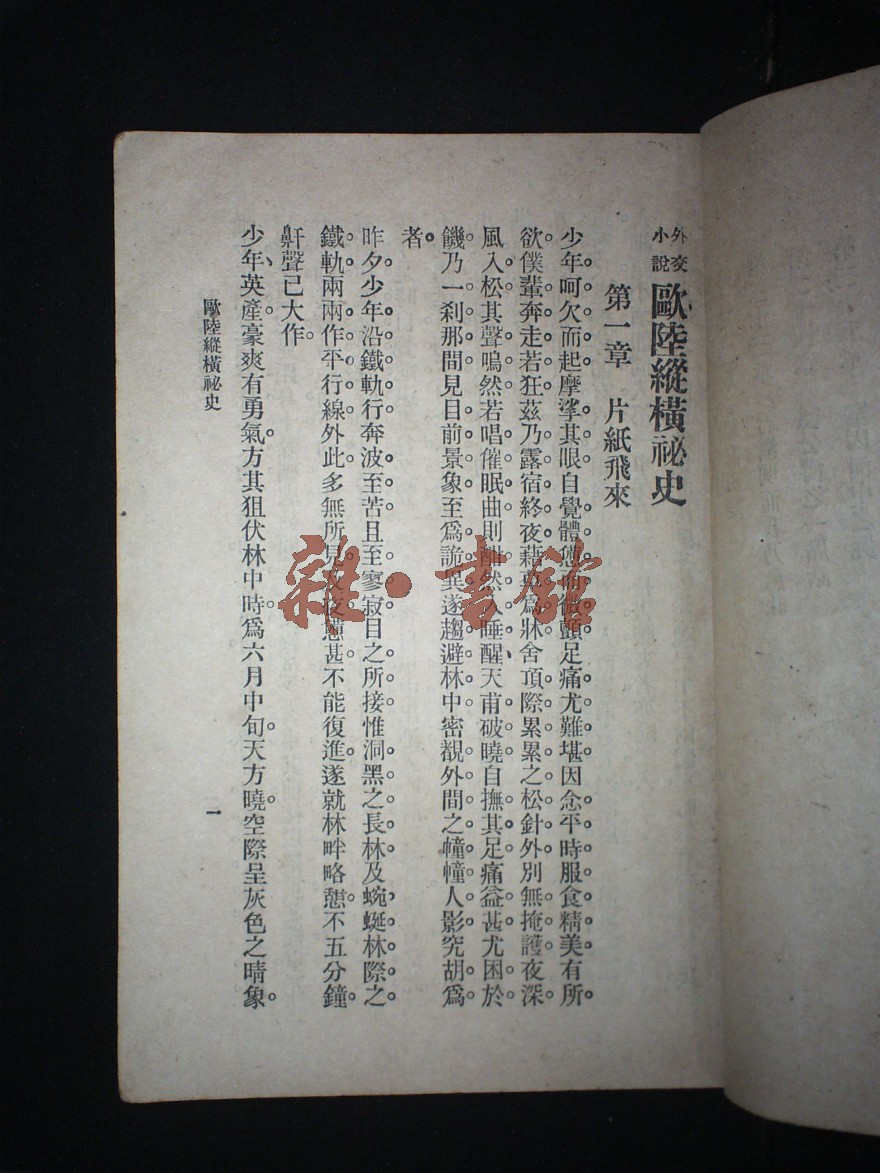 外交小說
歐陸縱橫祕史
第一章 片紙飛來
少年呵欠而起摩挲其眼自覺體憊而微顫足痛尤難堪因念平時服食精美有所
欲僕輩奔走若狂茲乃露宿終夜藉草爲牀舍頂際累累之松針外別無掩護夜深
風入松其聲嗚然若唱催眠曲則酣然入睡醒天甫破曉自撫其足痛益甚尤困於
饑乃一刹那間見目前景象至爲詭異遂趨避林中密覩外間之幢幢人影究胡爲
者。
昨夕少年沿鐵軌行奔波至苦且至寥寂目之所接惟洞黑之長林及蜿蜒林際之
鐵軌兩兩作平行線外此多無所見及夜憊甚不能復進遂就林畔略憩不五分鐘
鼾聲已大作。
少年英產豪爽有勇氣方其狙伏林中時爲六月中旬天方曉空際呈灰色之晴象
歐陸縱橫祕史
一
雜·書館